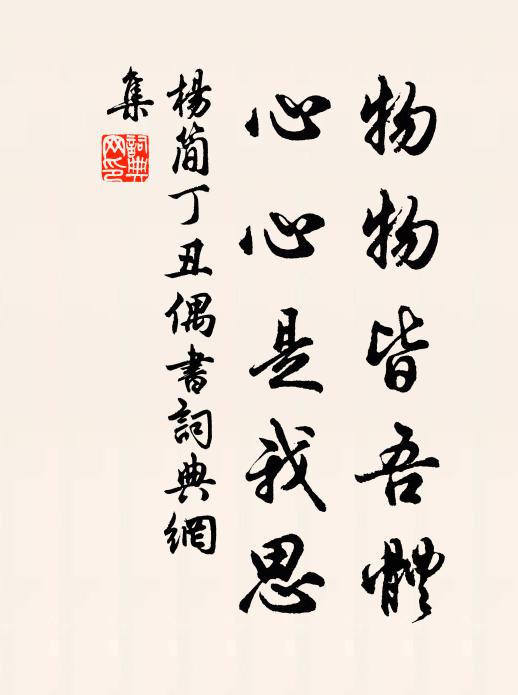 物物皆吾體
心心是我思
楊簡丁丑偶書詞典網
集
詞典
网印